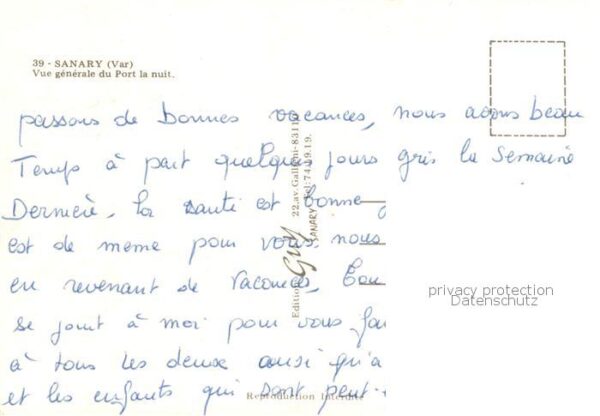 39 - SANARY (Var)
Vue générale du Port la nuit.
passons de bonnes vacances, nous avons beau
Temps à part quelques jours gris la semaine
Dernière. la santé est bonne
est de meme pour vous nous
en revenant de Vacances,
se joint à moi pour vous
à tous les deux ausi qu'a
et les enfants qui sont peut
Edition Guy
22, av. Gallieni - 83110
SANARY Tel: 74.19.19.
Reproduction Interdite
privacy protection
Datenschutz